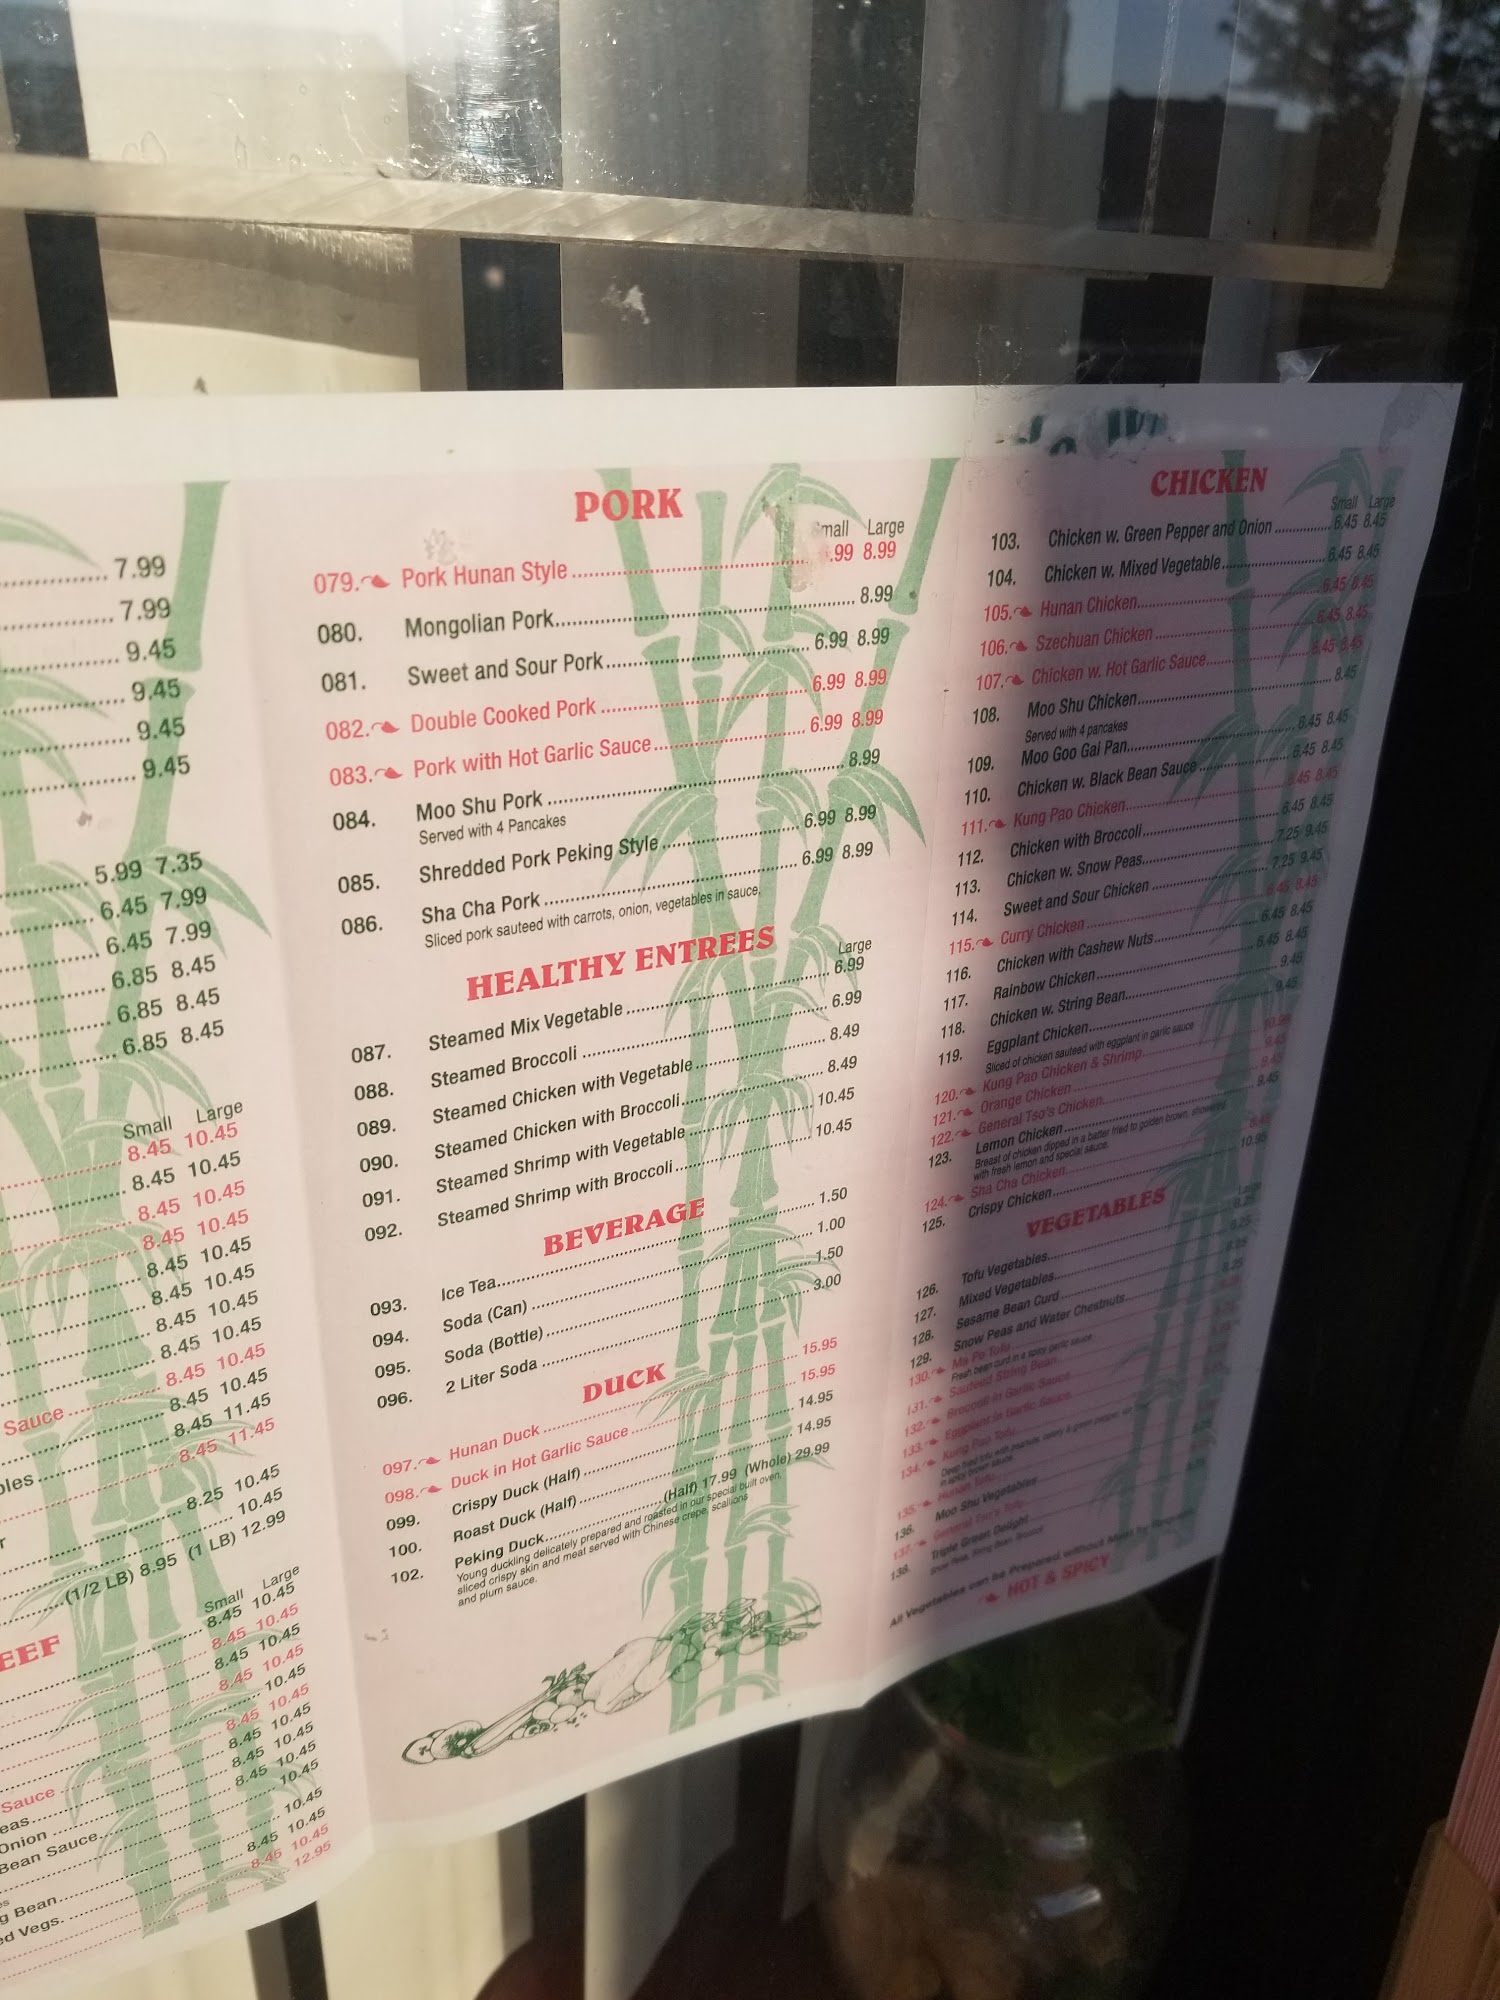 7.99
7.99
9.45
9.45
9.45
9.45
5.99 7.35
6.45 7.99
6.45 7.99
6.85 8.45
6.85 8.45
6.85 8.45
Small Large
8.45 10.45
8.45 10.45
8.45 10.45
8.45 10.45
8.45 10.45
8.45 10.45
8.45 10.45
8.45 10.45
Sauce 8.45 10.45
8.45 10.45
8.45 11.45
8.45 11.45
8.25 10.45
10.45
(1/2 LB) 8.95 (1 LB) 12.99
Small Large
8.45 10.45
8.45 10.45
8.45 10.45
8.45 10.45
10.45
8.45 10.45
Sauce 8.45 10.45
8.45 10.45
Onion 8.45 10.45
Bean Sauce 10.45
10.45
Bean 8.45 10.45
Vegs. 8.45 10.45
12.95
PORK
Large
079. Pork Hunan Style 8.99
080. Mongolian Pork 8.99
081. Sweet and Sour Pork 6.99 8.99
082. Double Cooked Pork 6.99 8.99
083. Pork with Hot Garlic Sauce 6.99 8.99
084. Moo Shu Pork 8.99
Served with 4 Pancakes
085. Shredded Pork Peking Style 6.99 8.99
086. Sha Cha Pork 6.99 8.99
Sliced pork sauteed with carrots, onion, vegetables in sauce.
HEALTHY ENTREES
Large
087. Steamed Mix Vegetable 6.99
088. Steamed Broccoli 6.99
089. Steamed Chicken with Vegetable 8.49
090. Steamed Chicken with Broccoli 8.49
091. Steamed Shrimp with Vegetable 10.45
092. Steamed Shrimp with Broccoli 10.45
BEVERAGE
093. Ice Tea 1.50
094. Soda (Can) 1.00
095. Soda (Bottle) 1.50
096. 2 Liter Soda 3.00
DUCK
097. Hunan Duck 15.95
098. Duck in Hot Garlic Sauce 15.95
099. Crispy Duck (Half) 14.95
100. Roast Duck (Half) 14.95
102. Peking Duck (Half) 17.99 (Whole) 29.99
Young duckling delicately prepared and roasted in our special built oven,
sliced crispy skin and meat served with Chinese crepe, scallions
and plum sauce.
CHICKEN
Small Large
103. Chicken w. Green Pepper and Onion 6.45 8.45
104. Chicken w. Mixed Vegetable 6.45 8.45
105. Hunan Chicken 6.45 8.45
106. Szechuan Chicken 6.45 8.45
107. Chicken w. Hot Garlic Sauce 6.45 8.45
108. Moo Shu Chicken 8.45
Served with 4 pancakes
109. Moo Goo Gai Pan 6.45 8.45
110. Chicken w. Black Bean Sauce 6.45 8.45
111. Kung Pao Chicken 6.45 8.45
112. Chicken with Broccoli 6.45 8.45
113. Chicken w. Snow Peas 7.25 9.45
114. Sweet and Sour Chicken 7.25 9.45
115. Curry Chicken 6.45 8.45
116. Chicken with Cashew Nuts 6.45 8.45
117. Rainbow Chicken 6.45 8.45
118. Chicken w. String Bean 9.45
119. Eggplant Chicken 9.45
Sliced of chicken sauteed with eggplant in garlic sauce
120. Kung Pao Chicken & Shrimp 10.95
121. Orange Chicken 9.45
122. General Tso's Chicken 9.45
123. Lemon Chicken 9.45
Breast of chicken dipped in a batter fried to golden brown, showered
with fresh lemon and special sauce.
124. Sha Cha Chicken
125. Crispy Chicken 10.95
VEGETABLES
126. Tofu Vegetables 8.25
127. Mixed Vegetables 8.25
128. Sesame Bean Curd 8.25
129. Snow Peas and Water Chestnuts 8.25
130. Ma Po Tofu
Fresh bean curd in a spicy garlic sauce
131. Sauteed String Bean
132. Broccoli in Garlic Sauce
133. Eggplant in Garlic Sauce
134. Kung Pao Tofu
Deep fried tofu with peanuts, celery & green pepper
in spicy brown sauce.
135. Hunan Tofu
136. Moo Shu Vegetables
137. General Tso's Tofu
138. Triple Green Delight
All Vegetables can be Prepared without Meat by Request
HOT & SPICY